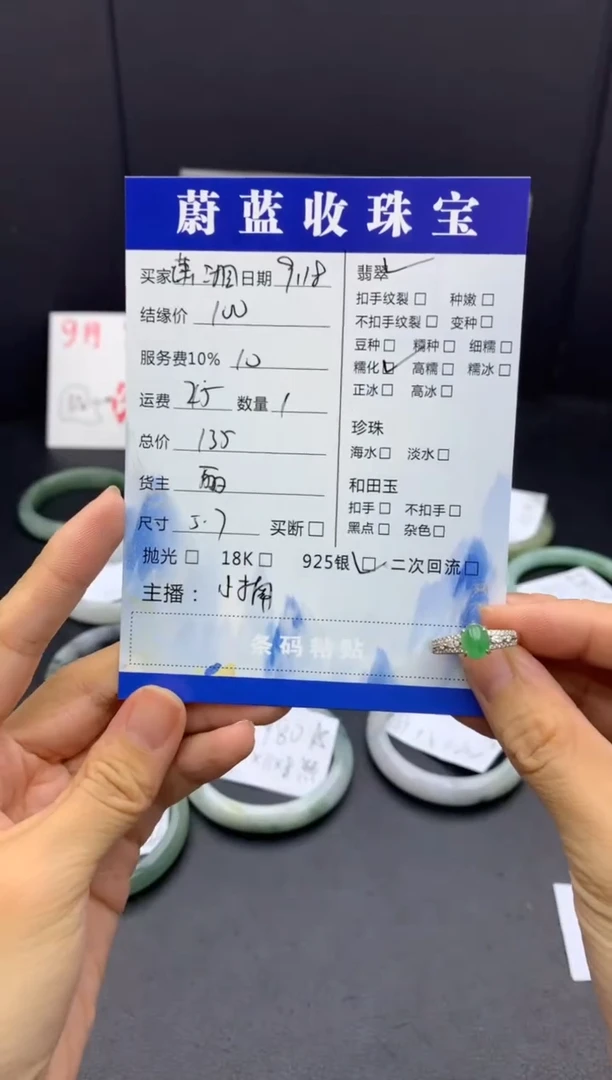 蔚蓝收珠宝
买家 日期 9.18
结缘价 100
服务费10% 10
运费 25 数量 1
总价 135
货主
尺寸 5.7 买断□
抛光 □ 18K□ 925银□ 二次回流□
主播：小
条码粘贴
翡翠
扣手纹裂□ 种嫩□
不扣手纹裂□ 变种□
豆种□ 糯种□ 细糯□
糯化□ 高糯□ 糯冰□
正冰□ 高冰□
珍珠
海水□ 淡水□
和田玉
扣手□ 不扣手□
黑点□ 杂色□
9月